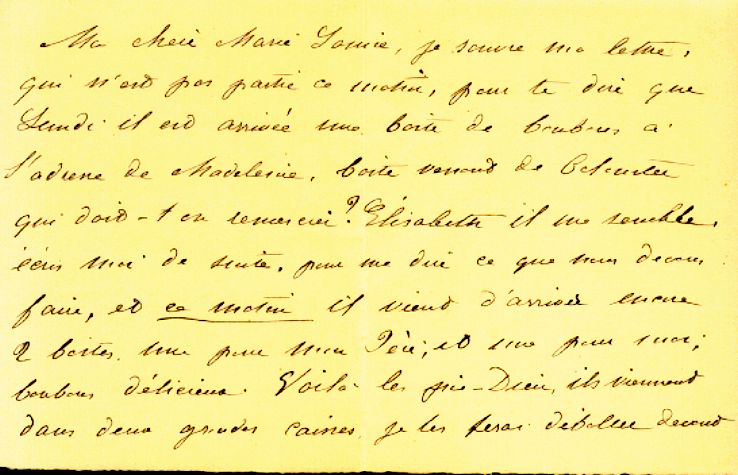 Ma chère Marie Louise, je rouvre ma lettre,
qui n'est pas partie ce matin, pour te dire que
Lundi il est arrivée une boite de bonbons à
l'adresse de Madeleine, boite venant de
qui doit-on remercier? Élisabeth il me semble,
écris moi de suite, pour me dire ce que nous devons
faire, et ce matin il vient d'arriver encore
2 boites, une pour mon Père, et une pour moi;
bonbons délicieux. Voilà les prie-Dieu, ils viennent
dans deux grandes caisses, je les ferai déballer devant